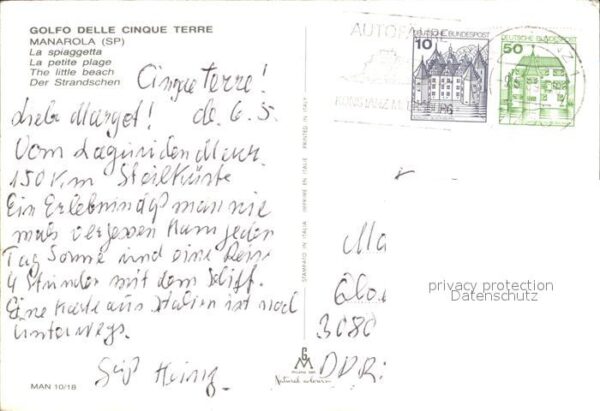 GOLFO DELLE CINQUE TERRE
MANAROLA (SP)
La spiaggetta
La petite plage
The little beach
Der Strandschen
AUTOFÄHRE
KONSTANZ-M
10
DEUTSCHE BUNDESPOST
50
DEUTSCHE BUNDESPOST
Cinque Terre!
Liebe Margot! d. 6.5.
Vom
150 Km Steilküste
Ein Erlebnis daß man nie
mals vergessen kann jeden
Tag Sonne und eine Reise
4 Stunden mit dem Schiff.
Eine Karte aus Italien ist noch
unterwegs.
Gruß Heinz.
STAMPATO IN ITALIA - IMPRIME EN ITALIE - PRINTED IN ITALY
Ma
3080
DDR
privacy protection
Datenschutz
Natural colour
MAN 10/18